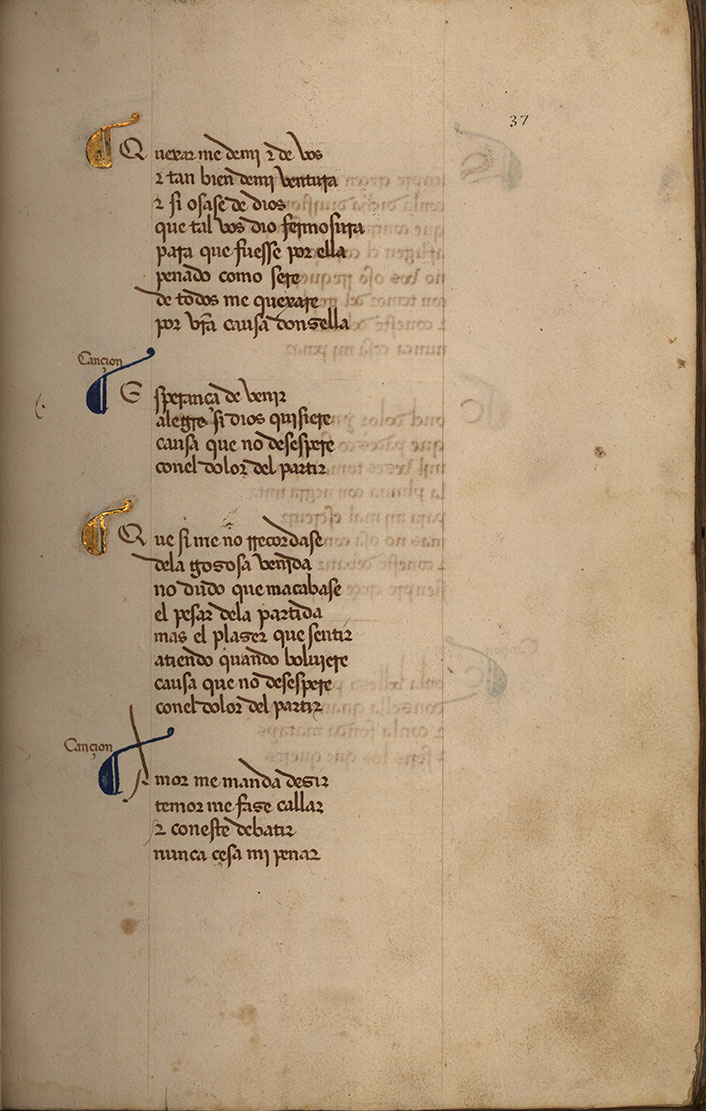 37
Quexar me demi ⁊ de vos
⁊ tan bien demi ventura
⁊ si osase de dios
que tal vos dio fermosura
para que fuesse por ella
penado como sere
de todos me quexare
por vr̃a causa donsella
Cançion
Esperança de venir
alegre si dios quisiere
causa que no desespere
conel dolor del partir
Que si me no rrecordase
dela gososa venida
no dudo que macabase
el pesar dela partida
mas el plaser que sentir
atiendo quando boluiere
causa que no desespere
conel dolor del partir
Cançion
Amor me manda desir
temor me fase callar
⁊ coneste debatir
nunca çesa mi penar